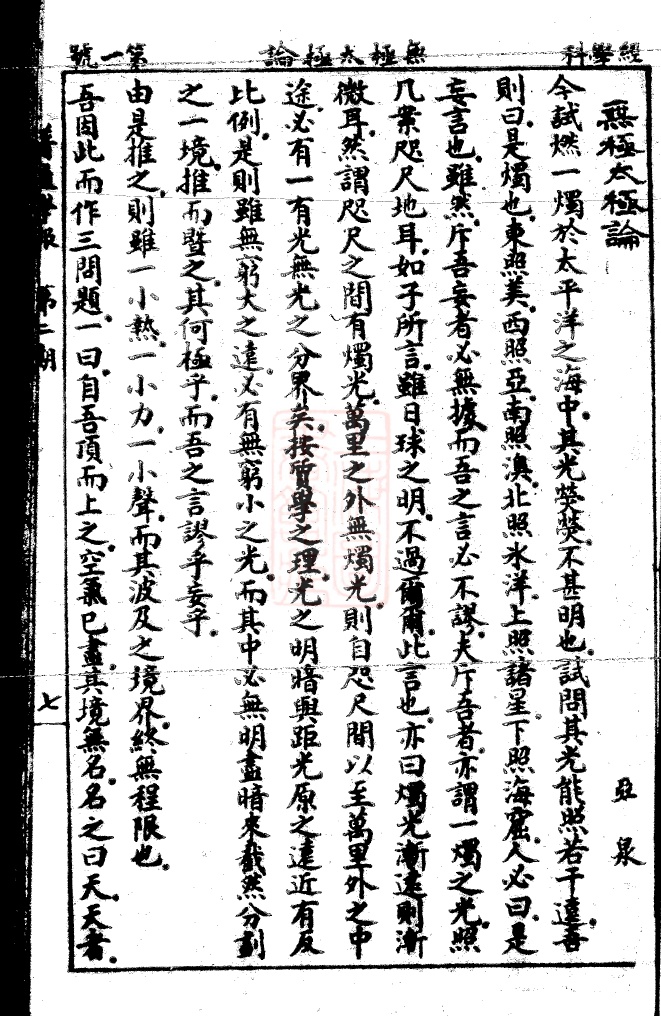 經學科
無極太極論
第一號
無極太極論
亞泉
今試燃一燭於太平洋之海中。其光熒熒。不甚明也。試問其光能照若干遠。吾
則曰。是燭也。東照美。西照亞。南照澳。北照氷洋。上照諸星。下照海窟。人必曰。是
妄言也。雖然。斥吾妄者必無據。而吾之言必不謬。夫斥吾者。亦謂一燭之光。照
几案咫尺地耳。如子所言。雖日球之明。不過爾爾。此言也。亦曰燭光漸遠則漸
微耳。然謂咫尺之間有燭光。萬里之外無燭光。則自咫尺間以至萬里外之中
途。必有一有光無光之分界矣。按質學之理。光之明暗與距光原之遠近有反
比例。是則雖無窮大之遠。必有無窮小之光。而其中必無明盡暗來截然分劃
之一境。推而暨之。其何極乎。而吾之言謬乎妄乎。
由是推之。則雖一小熱。一小力。一小聲。而其波及之境界。終無程限也。
吾因此而作三問題。一曰。自吾頂而上之。空氣已盡。其境無名。名之曰天。天者。
普通學報
第二期
七